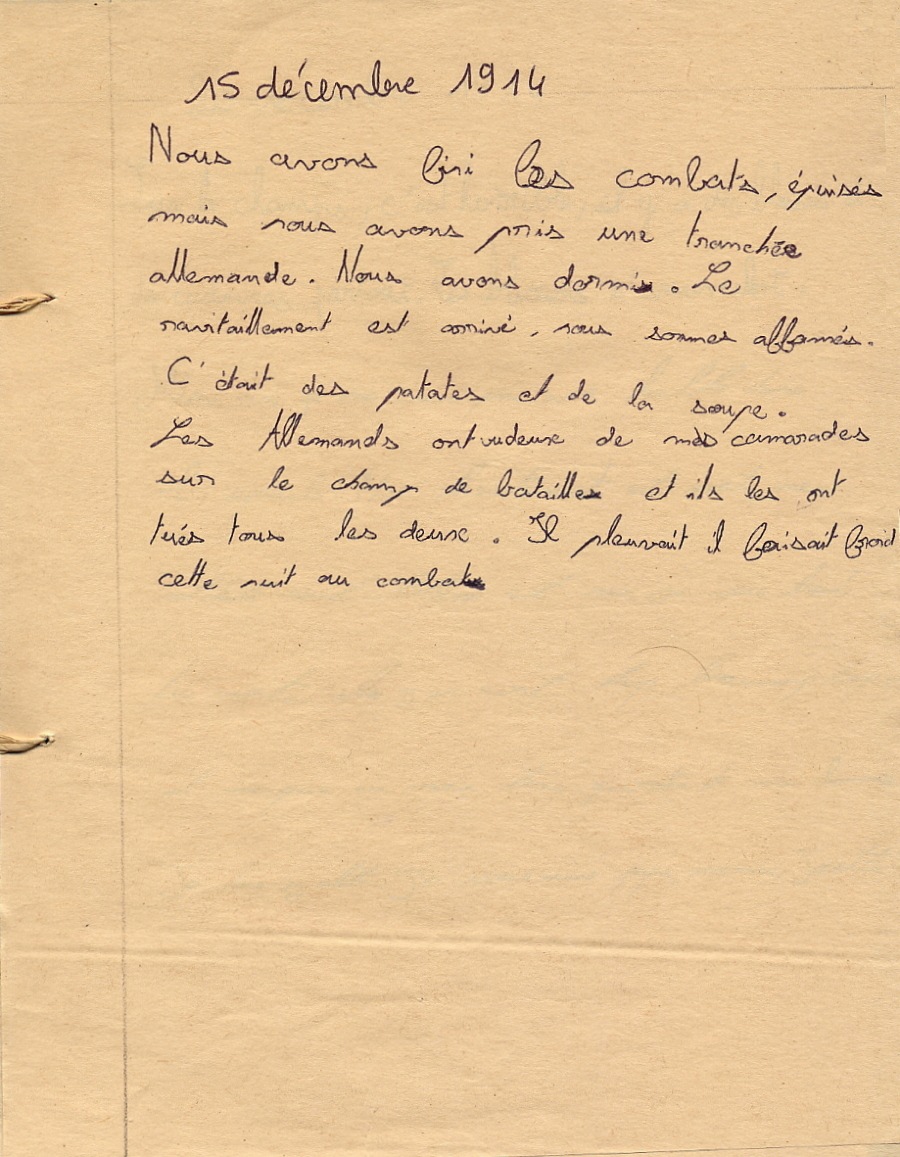 15 décembre 1914
Nous avons fini les combats, épuisés
mais nous avons pris une tranchée
allemande. Nous avons dormi. Le
ravitaillement est arrivé, nous sommes affamés.
C'était des patates et de la soupe.
Les Allemands ont vu deux de mes camarades
sur le champ de batailles et ils les ont
tués tous les deux. Il pleuvait il faisait froid
cette nuit au combat